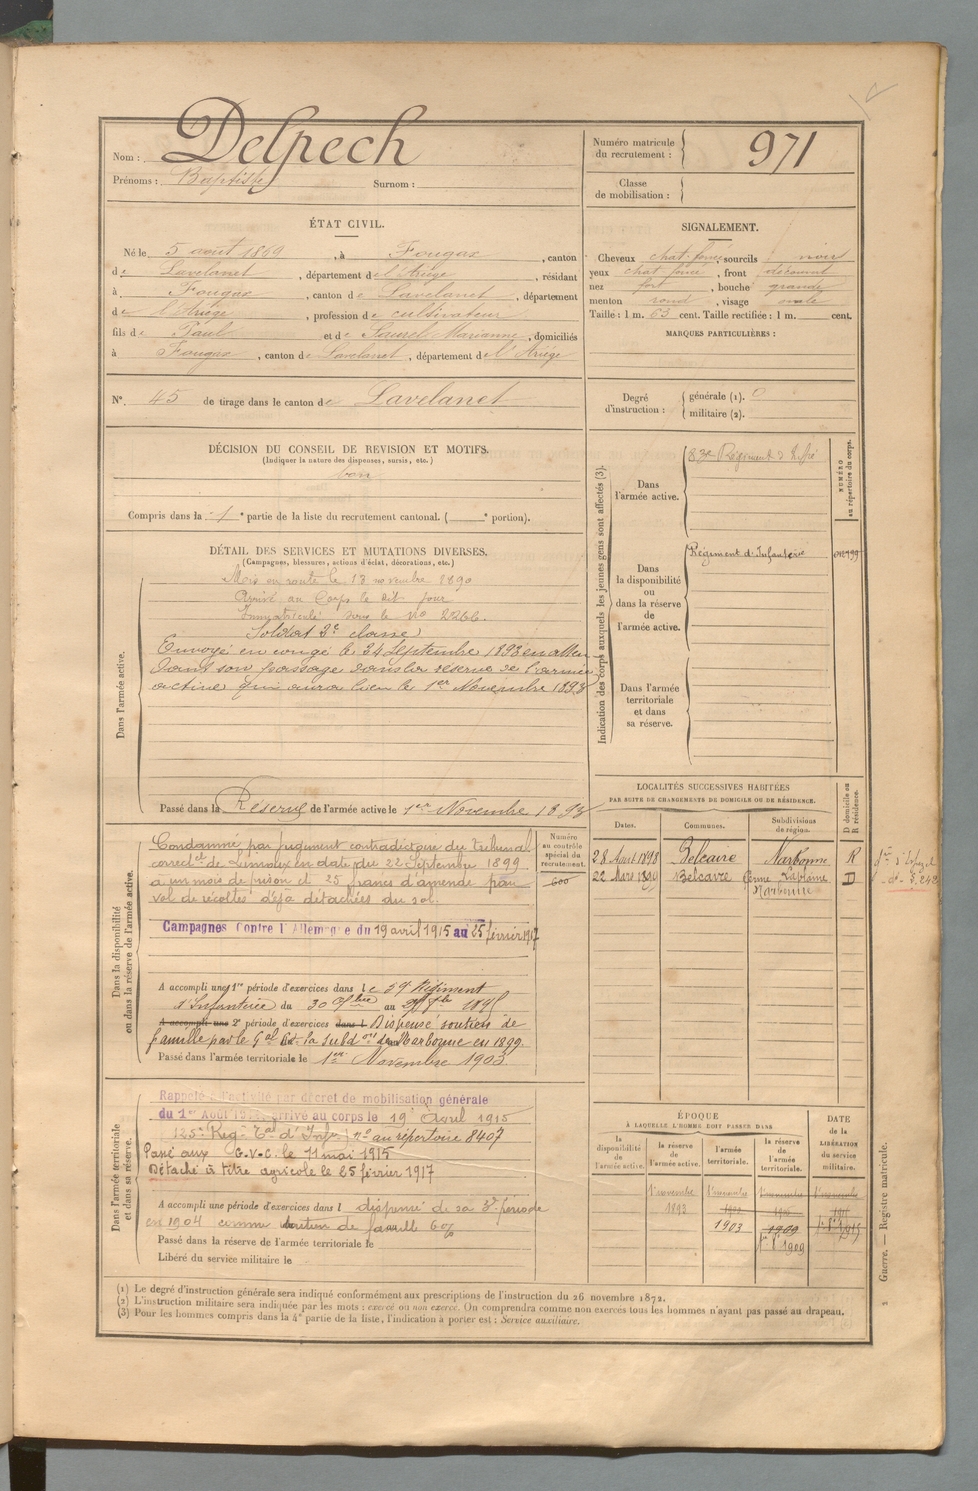 Nom : Delpech
Prénoms : Baptiste Surnom :
Numéro matricule du recrutement : 971
Classe de mobilisation :
ÉTAT CIVIL.
Né le 5 août 1869, à Fougax, canton
de Lavelanet, département de l'Ariège, résidant
à Fougax, canton de Lavelanet, département
de l'Ariège, profession de cultivateur
fils de Paul et de Saurel Marianne, domiciliés
à Fougax, canton de Lavelanet, département de l'Ariège
N° 45 de tirage dans le canton de Lavelanet
SIGNALEMENT.
Cheveux chat. foncé, sourcils noirs
yeux chat foncé, front découvert
nez fort, bouche grande
menton rond, visage ovale
Taille : 1 m. 63 cent. Taille rectifiée : 1 m. cent.
MARQUES PARTICULIÈRES :
Degré d'instruction : générale (1). 0
militaire (2).
DÉCISION DU CONSEIL DE REVISION ET MOTIFS.
(Indiquer la nature des dispenses, sursis, etc.)
bon
Compris dans la 1e partie de la liste du recrutement cantonal. (e portion).
DÉTAIL DES SERVICES ET MUTATIONS DIVERSES.
(Campagnes, blessures, actions d'éclat, décorations, etc.)
Dans l'armée active.
Mis en route le 13 novembre 1890
Arrivé au Corps le dit jour
Immatriculé sous le n° 2266.
Soldat 2e classe
Envoyé en congé le 24 Septembre 1893 en atten
dant son passage dans la réserve de l'armée
active qui aura lieu le 1er Novembre 1893
Passé dans la Réserve de l'armée active le 1er Novembre 1893
Indication des corps auxquels les jeunes gens sont affectés (3).
NUMÉRO au répertoire du corps.
Dans l'armée active.
83e Régiment d'Inftie
Dans la disponibilité ou dans la réserve de l'armée active.
Régiment d'Infanterie
Dans l'armée territoriale et dans sa réserve.
LOCALITÉS SUCCESSIVES HABITÉES
PAR SUITE DE CHANGEMENTS DE DOMICILE OU DE RÉSIDENCE.
D domicile ou R résidence.
Dates. Communes. Subdivisions de région.
28 Août 1898 Belcaire Narbonne R
22 Mars 1899 Belcaire Narbonne D
Dans la disponibilité ou dans la réserve de l'armée active.
Numéro au contrôle spécial du recrutement.
600
Condamné par jugement contradictoire du tribunal
correctel de Limoux en date du 22 Septembre 1899
à un mois de prison et 25 francs d'amende pour
vol de récoltes déjà détachées du sol.
Campagnes Contre l'Allemagne du 19 avril 1915 au 25 février 1917
A accompli une 1re période d'exercices dans le 59e Régiment
d'Infanterie du 30 au 1895
A accompli une 2e période d'exercices dans l Dispensé soutien de
famille par le Gal Ct la subdon de Narbonne en 1899.
Passé dans l'armée territoriale le 1er Novembre 1903.
Dans l'armée territoriale et dans sa réserve.
Rappelé à l'activité par décret de mobilisation générale
du 1er Août 1914. arrivé au corps le 19 Avril 1915
125e Reg. Tal d'Infie n° au répertoire 8407
Passé aux G.V.C. le 11 mai 1915
Détaché à titre agricole le 25 février 1917
A accompli une période d'exercices dans l dispensé de sa 3e période
en 1904 comme soutien de famille 6%
Passé dans la réserve de l'armée territoriale le
Libéré du service militaire le
ÉPOQUE
À LAQUELLE L'HOMME DOIT PASSER DANS
la disponibilité de l'armée active.
la réserve de l'armée active.
l'armée territoriale.
la réserve de l'armée territoriale.
DATE de la LIBÉRATION du service militaire.
1er novembre 1er novembre 1er novembre 1er novembre
1893
1903 1909
1er 8e 1909
Guerre. — Registre matricule.
(1) Le degré d'instruction générale sera indiqué conformément aux prescriptions de l'instruction du 26 novembre 1872.
(2) L'instruction militaire sera indiquée par les mots : exercé ou non exercé. On comprendra comme non exercés tous les hommes n'ayant pas passé au drapeau.
(3) Pour les hommes compris dans la 4e partie de la liste, l'indication à porter est : Service auxiliaire.